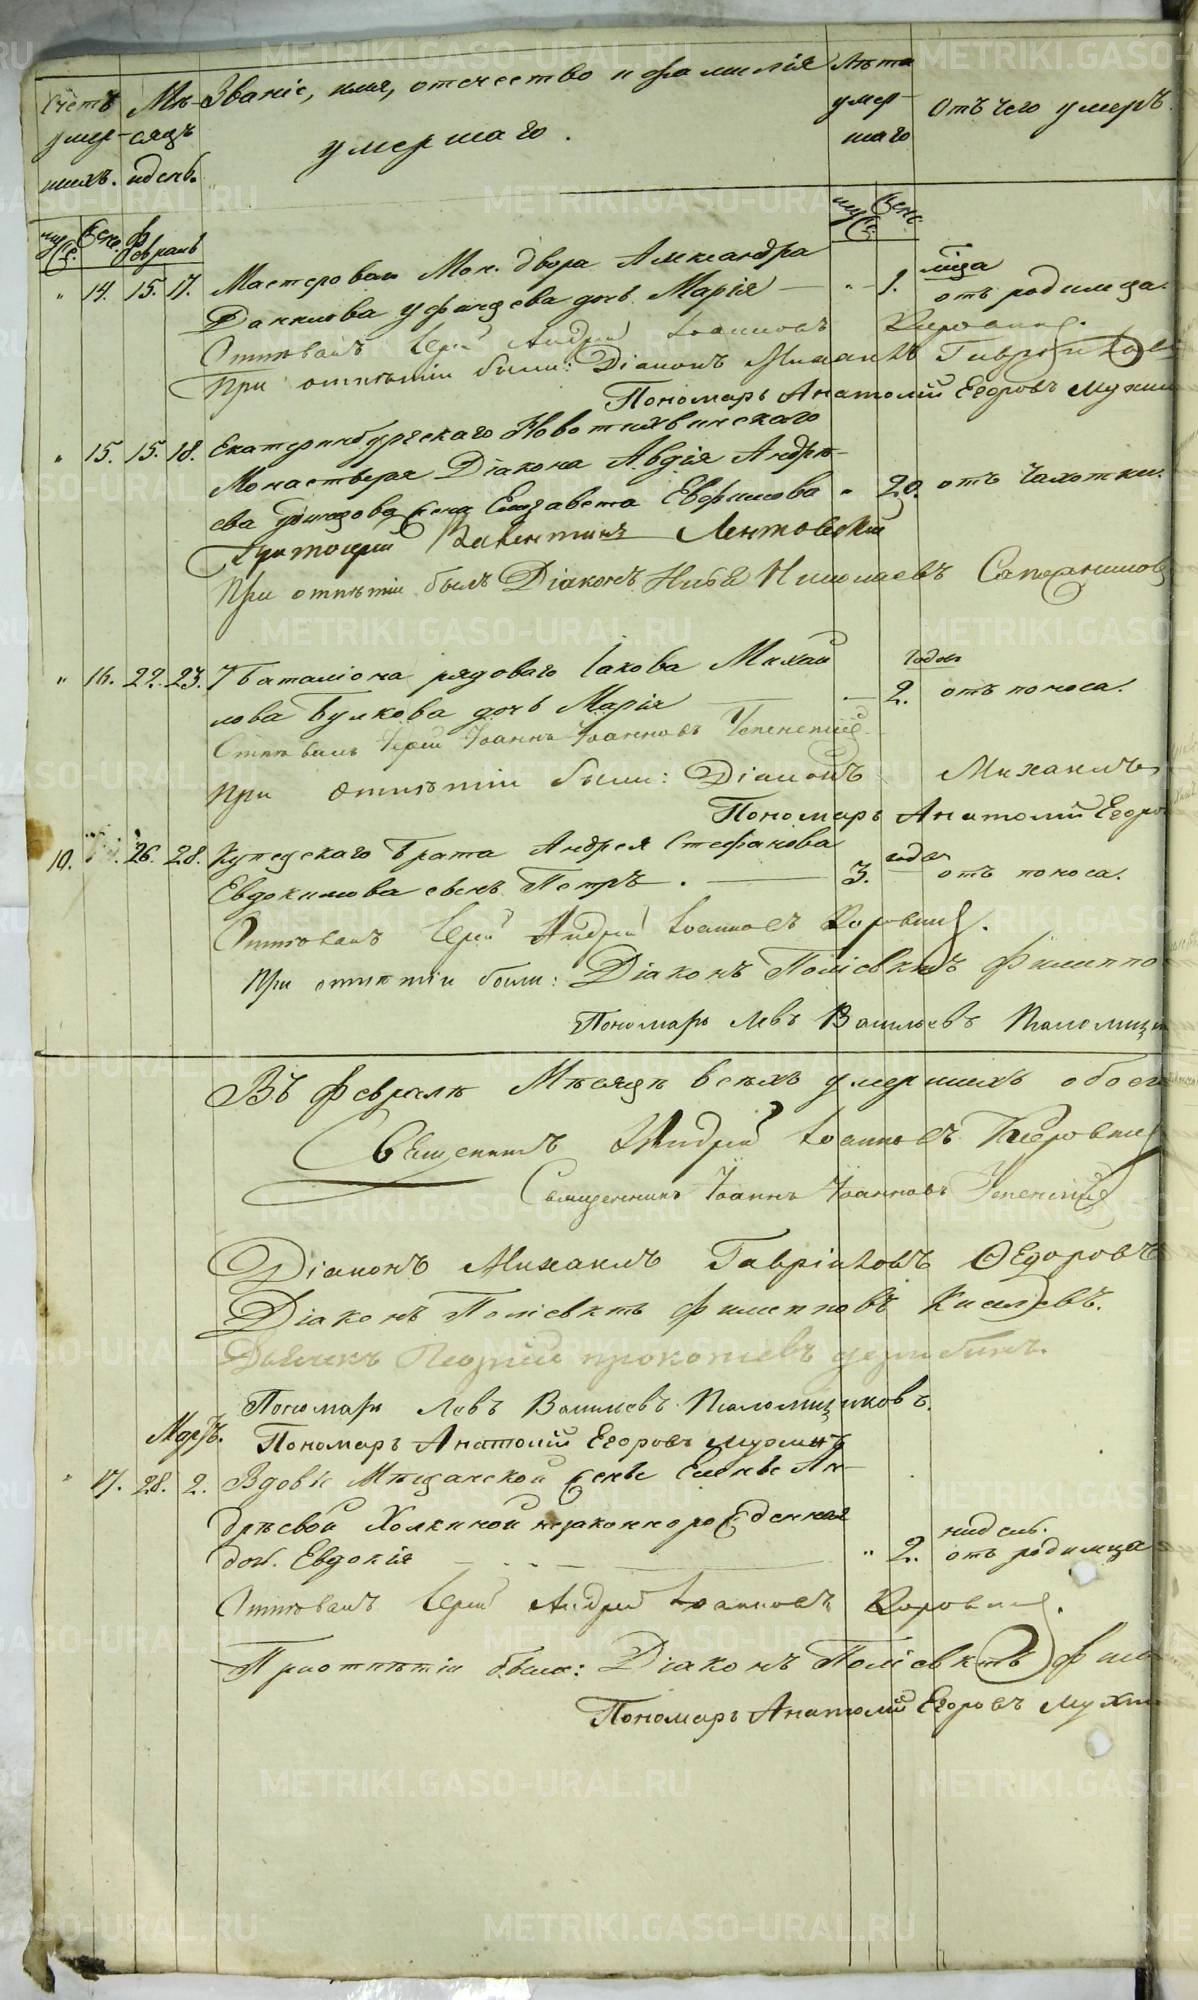 Счетъ умер-шихъ.
Мѣ-сяцъ и день.
Званіе, имя, отчество и фамилія
умершаго.
Лѣта умер-шаго
Отъ чего умеръ.
Муж. Жен. Февраль
Муж. Жен.
" 14. 15. 17. Мастероваго Мон. двора Александра
Данилова дочь Марія — " 1. мѣсяца отъ родимца.
Отпѣвалъ Іерей Андрей Іоанновъ
При отпѣтіи были: Діаконъ Михаилъ Гавріиловъ
Пономарь Анатолій Егоровъ
" 15. 15. 18. Екатеринбургскаго Новотихвинскаго
Монастыря Діакона Авдія Андрѣ-
ева жена Елизавета Евфимова " 20. отъ чахотки.
Протоіерей Валентинъ Лентовскій
При отпѣтіи былъ Діаконъ Николаевъ
" 16. 22. 23. 7 Баталіона рядоваго Іакова Михай
лова Булкова дочь Марія — 2. годовъ отъ поноса.
Отпѣвалъ Іерей Іоаннъ Іоанновъ Успенскій
При отпѣтіи были: Діаконъ Михаилъ
Пономарь Анатолій Егоро
10. 26. 28. Купецскаго брата Андрея Стефанова
Евдокимова сынъ Петръ. — 3. года отъ поноса.
Отпѣвалъ Іерей Андрей Іоанновъ
При отпѣтіи были: Діаконъ Поліевктъ Филиппо
Пономарь Левъ Васильевъ
Въ Февралѣ Мѣсяцѣ всѣхъ умершихъ обоего
Священникъ Андрей Іоанновъ
Священникъ Іоаннъ Іоанновъ Успенскій
Діаконъ Михаилъ Гавріиловъ Ѳедоровъ
Діаконъ Поліевктъ Филипповъ Киселевъ.
Дьячекъ Георгій Прокопіевъ
Пономарь Левъ Васильевъ
Мартъ.
Пономарь Анатолій Егоровъ Мухинъ
" 17. 28. 2. Вдовы Мѣщанской жены Елены Ан-
дрѣевой Холкиной незаконнорожденная
доч. Евдокія — " 2. недѣль. отъ родимца
Отпѣвалъ Іерей Андрей Іоанновъ
При отпѣтіи были: Діаконъ Поліевктъ Фил
Пономарь Анатолій Егоровъ Мухин
METRIKI.GASO-URAL.RU